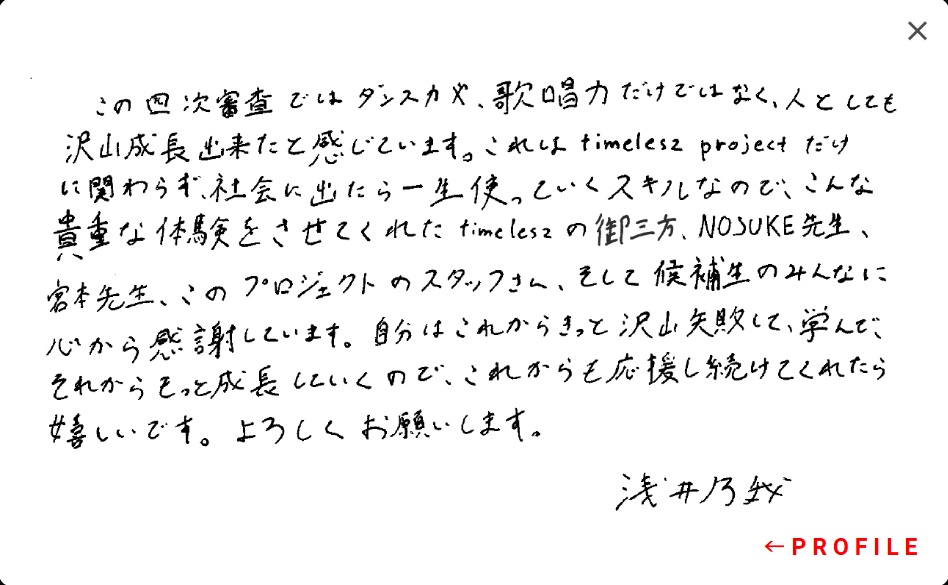 この四次審査ではダンスカや、歌唱力だけではなく、人としても
沢山成長出来たと感じています。これはtimelesz projectだけ
に関わらず、社会に出たら一生使っていくスキルなので、こんな
貴重な体験をさせてくれたtimeleszの御三方、NOSUKE先生、
宮本先生、このプロジェクトのスタッフさん、そして候補生のみんなに
心から感謝しています。自分はこれからきっと沢山失敗して、学んで、
それからもっと成長していくので、これからも応援し続けてくれたら
嬉しいです。よろしくお願いします。
浅井乃我
←PROFILE